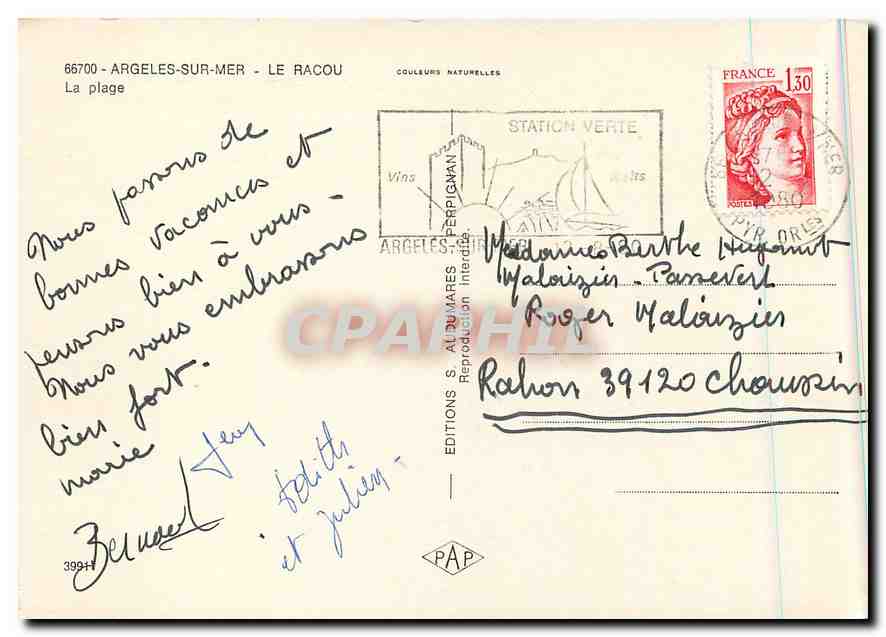 66700 - ARGELES-SUR-MER - LE RACOU
La plage
COULEURS NATURELLES
Nous passons de
bonnes vacances et
pensons bien à vous -
Nous vous embrassons
bien fort.
marie
Bernard
Edith
et Julien -
39911
STATION VERTE
Vins
ARGELÈS-SUR-MER
FRANCE
1,30
POSTES
1980
PYR. ORLES
EDITIONS S. AUDUMARES PERPIGNAN
Reproduction Interdite.
PAP
Mesdames Berthe
Malouzier - Passevert
Roger Malouzier
Rahon 39120 Chaussin
CPAPHIL